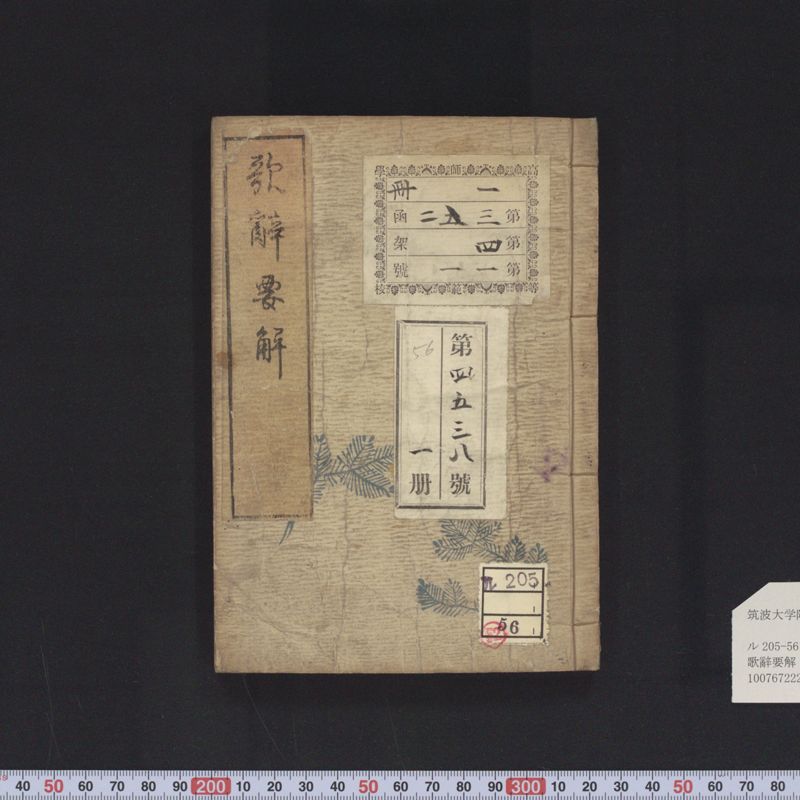 歌辭要解
高等師範學校
一 冊
第 三 二 函
第 四 架
第 一一 號
第四五三八號
一册
56
ル 205
56
筑波大学附
ル 205-56
歌辭要解
100767222
40 50 60 70 80 90 200 10 20 30 40 50 60 70 80 90 300 10 20 30 40 50 60 70 80